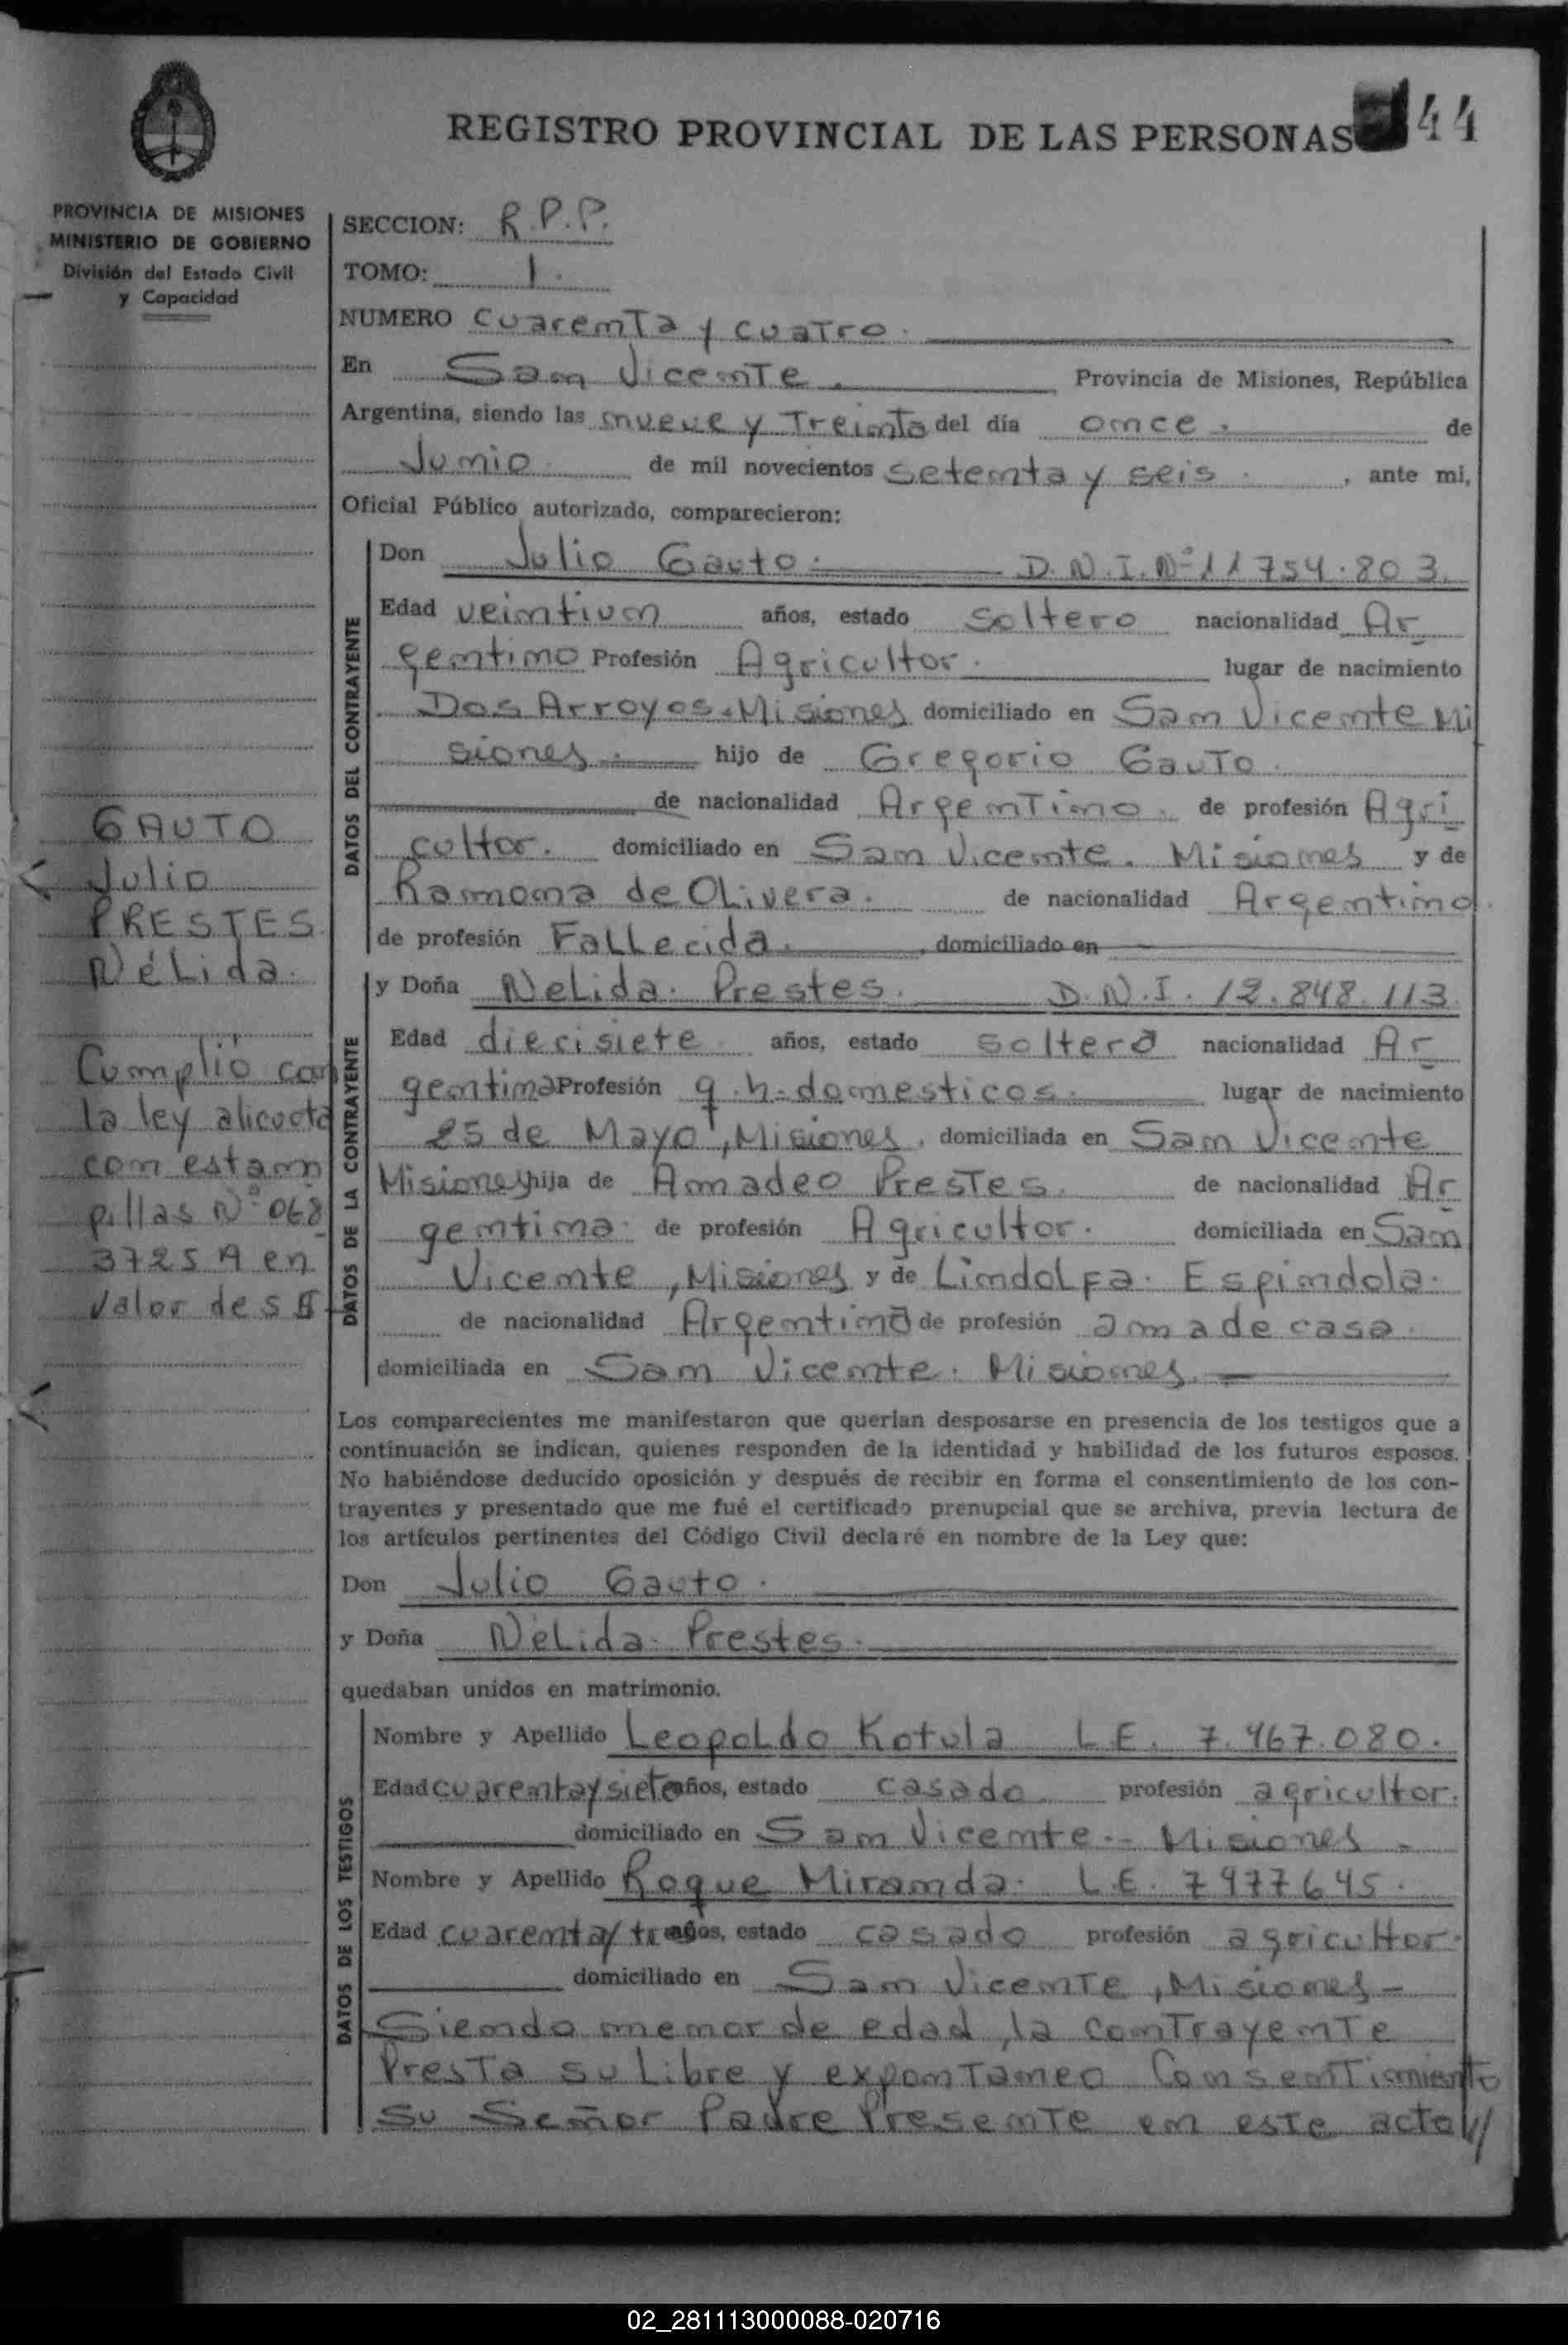 REGISTRO PROVINCIAL DE LAS PERSONAS 44
PROVINCIA DE MISIONES
MINISTERIO DE GOBIERNO
División del Estado Civil
y Capacidad
SECCION: R.P.P.
TOMO: 1.
NUMERO cuarenta y cuatro.
En San Vicente. Provincia de Misiones, República
Argentina, siendo las nueve y treinta del día once. de
Junio de mil novecientos setenta y seis. , ante mi,
Oficial Público autorizado, comparecieron:
DATOS DEL CONTRAYENTE
Don Julio Gauto. D.N.I. Nº 11 754.803.
Edad veintiun años, estado soltero nacionalidad Ar
gentino Profesión Agricultor. lugar de nacimiento
Dos Arroyos. Misiones domiciliado en San Vicente Mi
siones. hijo de Gregorio Gauto.
de nacionalidad Argentino. de profesión Agri
cultor. domiciliado en San Vicente. Misiones y de
Ramona de Olivera. de nacionalidad Argentino.
de profesión Fallecida. , domiciliado en
DATOS DE LA CONTRAYENTE
y Doña Nelida. Prestes. D.N.I. 12.848.113.
Edad diecisiete. años, estado soltera nacionalidad Ar
gentina Profesión q.h. domesticos. lugar de nacimiento
25 de Mayo, Misiones. domiciliada en San Vicente
Misiones hija de Amadeo Prestes. de nacionalidad Ar
gentina. de profesión Agricultor. domiciliada en San
Vicente, Misiones y de Lindolfa. Espindola.
de nacionalidad Argentina de profesión ama de casa.
domiciliada en San Vicente. Misiones.
Los comparecientes me manifestaron que querían desposarse en presencia de los testigos que a
continuación se indican, quienes responden de la identidad y habilidad de los futuros esposos.
No habiéndose deducido oposición y después de recibir en forma el consentimiento de los con-
trayentes y presentado que me fué el certificado prenupcial que se archiva, previa lectura de
los artículos pertinentes del Código Civil declaré en nombre de la Ley que:
Don Julio Gauto.
y Doña Nélida. Prestes.
quedaban unidos en matrimonio.
DATOS DE LOS TESTIGOS
Nombre y Apellido Leopoldo Kotula L.E. 7.467.080.
Edad cuarenta y siete años, estado casado. profesión agricultor.
domiciliado en San Vicente.- Misiones.
Nombre y Apellido Roque Miranda. L.E. 7477645.
Edad cuarenta y tres años, estado casado profesión agricultor.
domiciliado en San Vicente, Misiones-
Siendo menor de edad, la contrayente
Presta su libre y expontaneo Consentimiento
su Señor Padre Presente en este acto//
GAUTO
Julio
PRESTES.
Nélida.
Cumplió con
la ley alicuota
con estam
pillas Nº 068
3725 A en
valor de
02_281113000088-020716